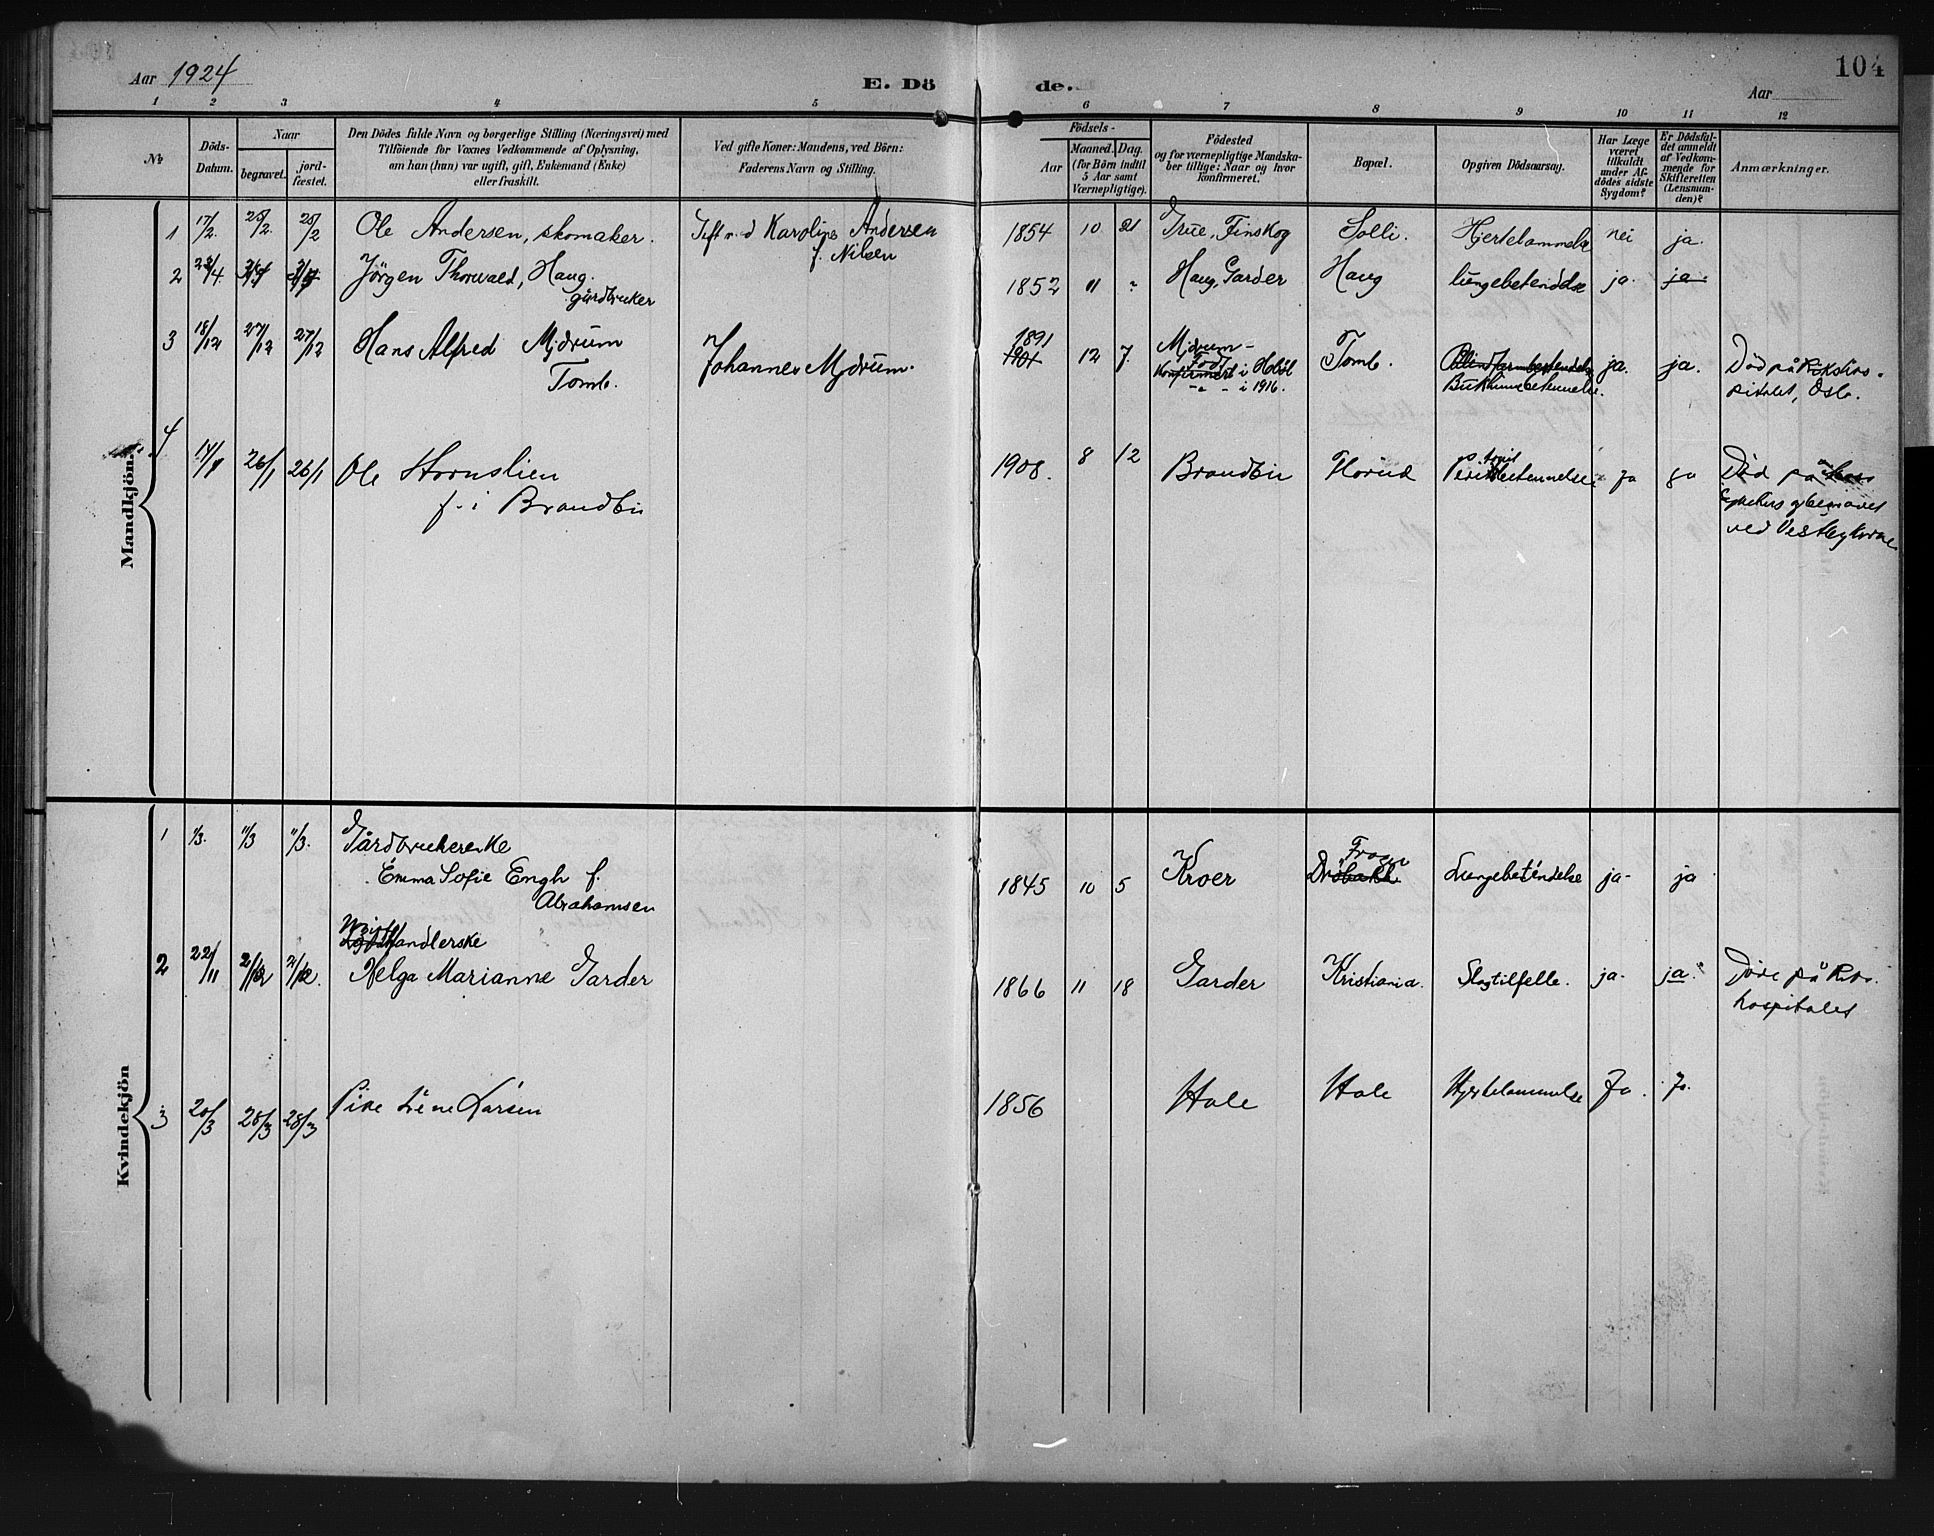 Aar 1924
E. Dö
de.
Aar
104
1 2 3 4 5 6 7 8 9 10 11 12
No
Döds-
Datum.
Naar
begravet.
jord-
fæstet.
Den Dödes fulde Navn og borgerlige Stilling (Næringsvei) med
Tilföiende for Voxnes Vedkommende af Oplysning,
om han (hun) var ugift, gift, Enkemand (Enke)
eller fraskilt.
Ved gifte Koner: Mandens, ved Börn:
Faderens Navn og Stilling.
Födsels-
Aar
Maaned. Dag.
(for Börn indtil
5 Aar samt
Værnepligtige).
Födested
og for værnepligtige Mandska-
ber tillige: Naar og hvor
konfirmeret.
Bopæl.
Opgiven Dödsaarsag.
Har Læge
været
tilkaldt
under Af-
dödes sidste
Sygdom?
Er Dödsfal-
det anmeldt
af Vedkom-
mende for
Skifteretten
(Lensman-
den)?
Anmærkninger.
Mandkjön.
1 17/2. 25/2 25/2 Ole Andersen, skomaker. Gift med Karoline Andersen
f. Nilsen
1854 10 21 Grue, Finskog Solli. Hjertelammelse nei ja.
2 Jörgen Thorvald, Haug.
gårdbruker
1852 11 Haug, Garder Haug lungebetendelse ja. ja
3 18/12 27/12 27/12 Hans Alfred Mjdrum
Tomb.
Johannes Mjdrum.
1891
1901 12 7. Mjdrum-
Född
Konfirmert i Hoböl
i 1916.
Tomb.
Blindtarmbetendelse
Bukhinnebetennelse.
ja. ja. Död på Rikshos-
pitalet, Oslo.
4 26/1 26/1 Ole Hornslien
f. i Brandbu
1908. 8 12 Brandbu Horud betennelse ja ja Död på
ved Vestby kirke
Kvindekjön
1 1/3. 11/3 11/3. Gårdbrukerenke
Emma Sofie Engh f.
Abrahamsen
1845 10 5 Kroer Frogn
Dröbakk
Lungebetendelse ja- ja
2 22/11 2/12 2/12.
handlerske
Helga Marianne Garder
1866 11 18 Garder Kristiania. Slagtilfelle. ja- ja. Döde på Riks-
hospitalet
3 20/3 28/3 28/3 Pike Line Larsen
1856 Hole Hole Hjertelammelse Ja. Ja.